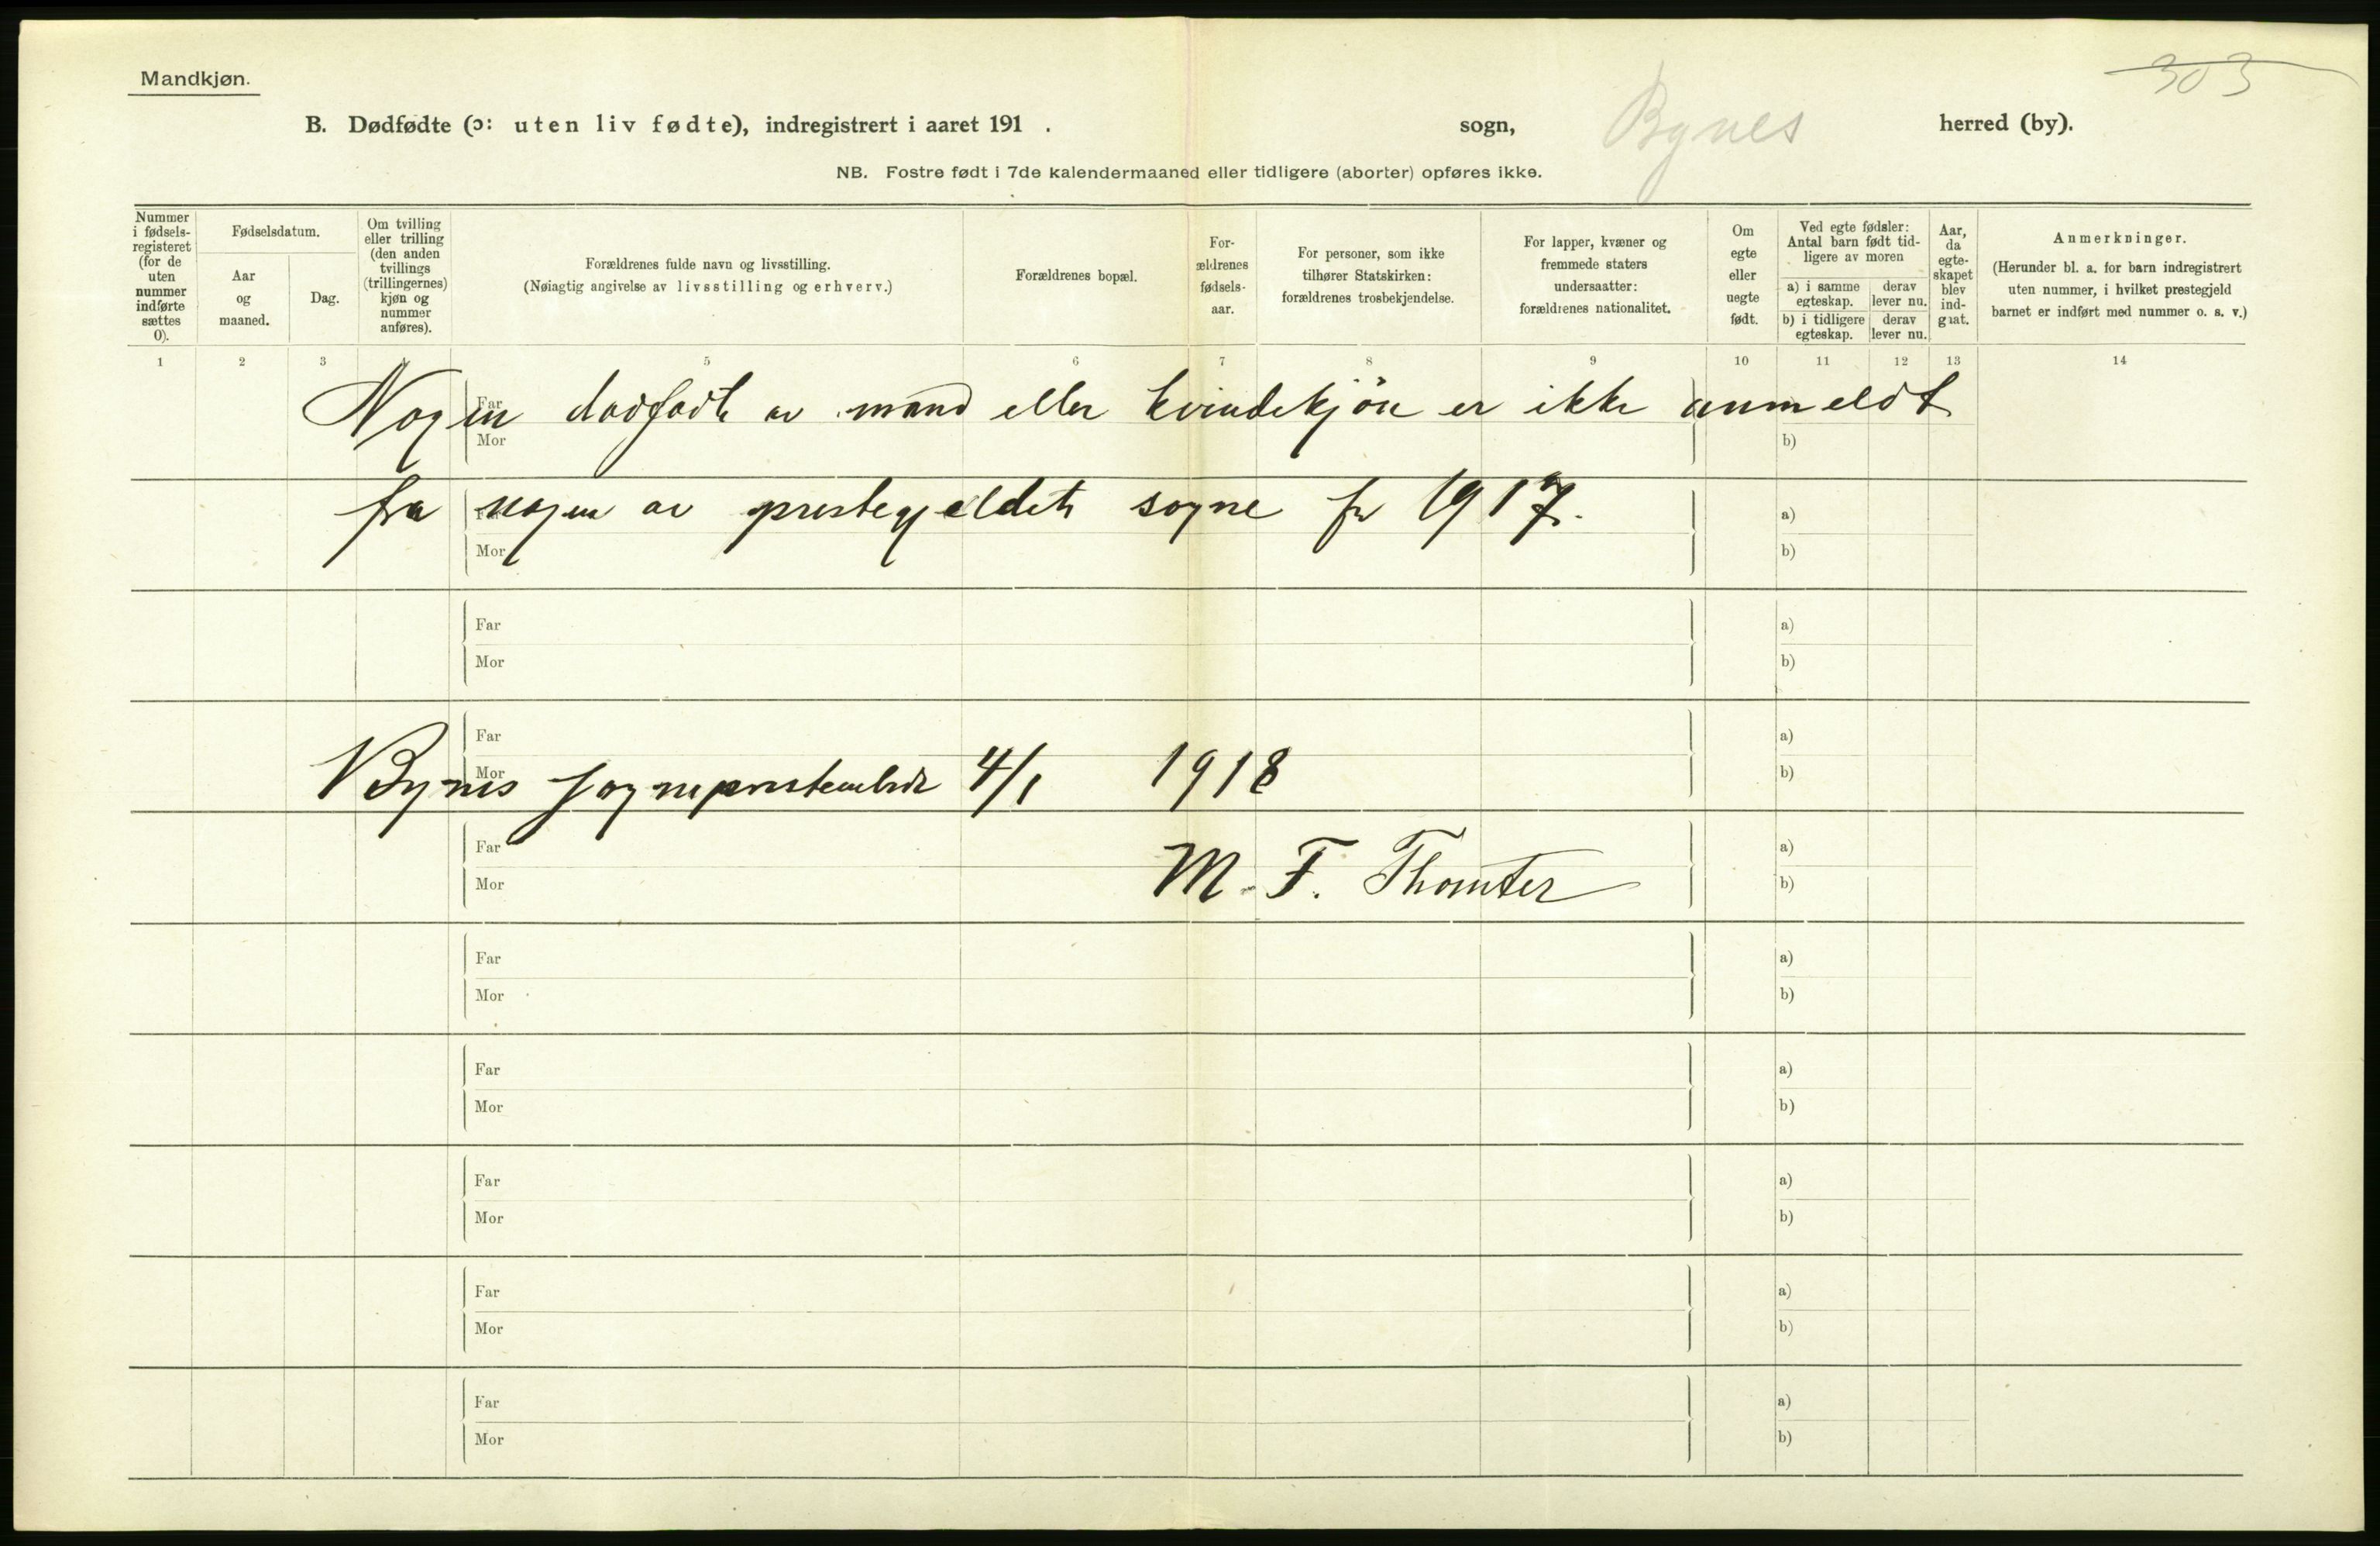 Mandkjøn.
303
B. Dødfødte (ɔ: uten liv fødte), indregistrert i aaret 191 . sogn, Bynes herred (by).
NB. Fostre født i 7de kalendermaaned eller tidligere (aborter) opføres ikke.
Nummer
i fødsels-
registeret
(for de
uten
nummer
indførte
sættes
0).
Fødselsdatum.
Aar
og
maaned.
Dag.
Om tvilling
eller trilling
(den anden
tvillings
(trillingernes)
kjøn og
nummer
anføres).
Forældrenes fulde navn og livsstilling.
(Nøiagtig angivelse av livsstilling og erhverv.)
Forældrenes bopæl.
For-
ældrenes
fødsels-
aar.
For personer, som ikke
tilhører Statskirken:
forældrenes trosbekjendelse.
For lapper, kvæner og
fremmede staters
undersaatter:
forældrenes nationalitet.
Om
egte
eller
uegte
født.
Ved egte fødsler:
Antal barn født tid-
ligere av moren
a) i samme
egteskap.
derav
lever nu.
b) i tidligere
egteskap.
derav
lever nu.
Aar,
da
egte-
skapet
blev
ind-
gaat.
Anmerkninger.
(Herunder bl. a. for barn indregistrert
uten nummer, i hvilket prestegjeld
barnet er indført med nummer o. s. v.)
1 2 3 5 6 7 8 9 10 11 12 13 14
Far
Nogen dødfødte av mand eller kvindekjön er ikke anmeldt
Mor b)
fra nogen av prestegjeldets sogne for 1917.
a)
Mor b)
Far a)
Mor b)
Far a)
Mor b)
Bynes sogneprestembede 4/1 1918
Far a)
M. F. Thomter
Mor b)
Far a)
Mor b)
Far a)
Mor b)
Far a)
Mor b)
Far a)
Mor b)
Far a)
Mor b)